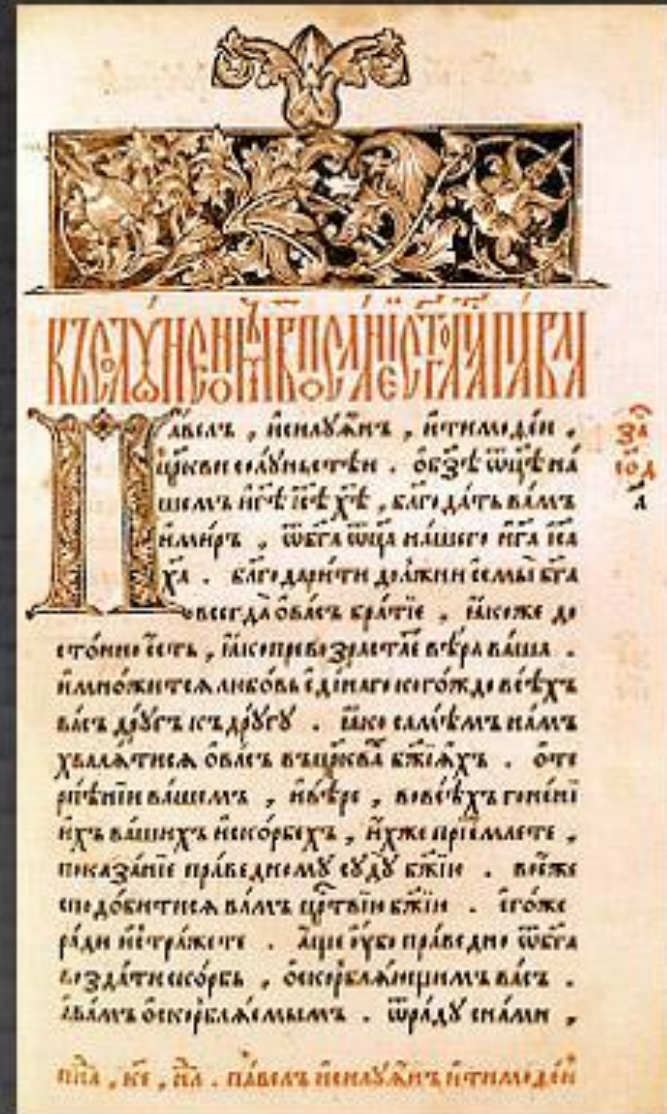 КЪСОЛꙊНЕНѠМЪ В҃ ПОСЛА́НЇЕ СТ҃ГО АП҃ЛА ПА́ВЛА
Па́велъ , и҆силꙋа́нъ , и҆тимоѳе́и ,
цр҃кви солу́ньстѣи . о҆бз҃ѣ ѿц҃ѣ на́
шемъ и҆г҃ѣ і҆с҃ѣ х҃ѣ , блг҃ода́ть ва́мъ
и҆ми́ръ , ѿбг҃а ѿц҃а на́шего и҆г҃а і҆с҃а
х҃а . блг҃одари́ти до́лжни есмы̀ бг҃а
всегда̀ о҆ва́съ бра́тїе , ꙗ҆́коже до
сто́йно є҆́сть , ꙗ҆́ко превозраста́е вѣ́ра ва́ша .
и҆мно́житсѧ любо́вь є҆ди́наго кого́ждо всѣ́хъ
ва́съ дрꙋ́гъ къдрꙋ́гꙋ . ꙗ҆́ко самѣ́мъ на́мъ
хвали́тисѧ о҆ва́съ въцр҃ква бж҃їѧхъ . о҆те
рпѣ́нїи ва́шемъ , и҆вѣ́ре , вовсѣ́хъ гоне́нї
и҆хъ ва́шихъ и҆ско́рбехъ , и҆́хже прїе́млете ,
показа́нїе пра́ведномꙋ сꙋдꙋ̀ бж҃їю . во є҆́же
сподо́битисѧ ва́мъ цр҃твїю бж҃їю . є҆го́же
ра́ди и҆стра́жете . а҆́ще ᲂу҆́бо пра́ведно ѿбг҃а
возда́ти ско́рбь , о҆скорблѧ́ющимъ ва́съ .
а҆ва́мъ о҆скорблѧ́емымъ . ѿра́дꙋ сна́ми ,
за
па́велъ и҆силꙋа́нъ и҆тимоѳе́и